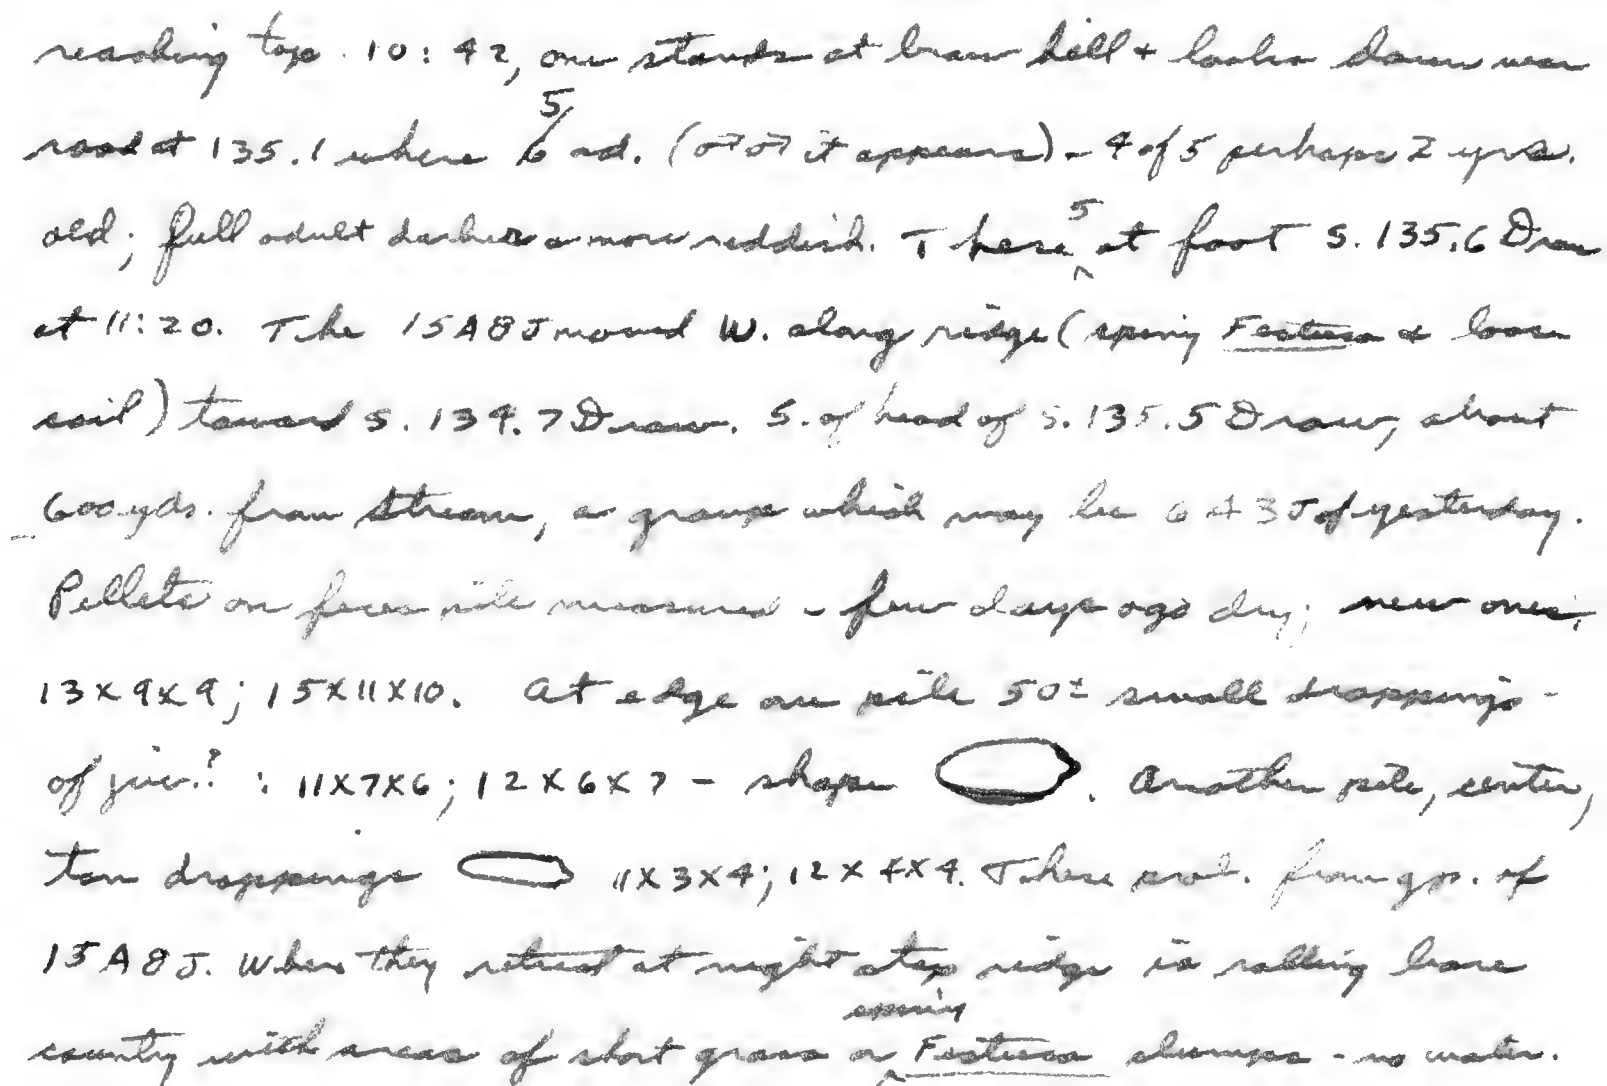 reaching top. 10:42, one stands at brow hill + looks down near
road at 135.1 where 6 5 ad. (♂♂ it appears) - 4 of 5 perhaps 2 yrs.
old; full adult darker & more reddish. These 5 at foot S. 135.6 Draw
at 11:20. The 15A8J moved W. along ridge (spiny Festuca & loose
soil) toward S. 134.7 Draw. S. of head of S. 135.5 Draw, about
600 yds. from stream, a group which may be 6 + 3J of yesterday.
Pellets on feces pile measured - few days ago dry; new ones,
13x9x9; 15x11x10. At edge one pile 50± small droppings -
of juv.? : 11x7x6; 12x6x7 - shape . Another pile, center,
ten droppings 11x3x4; 12x4x4. These prob. from gp. of
15A8J. When they retreat at night atop ridge is rolling bare
spiny
country with areas of short grass or Festuca clumps - no water.